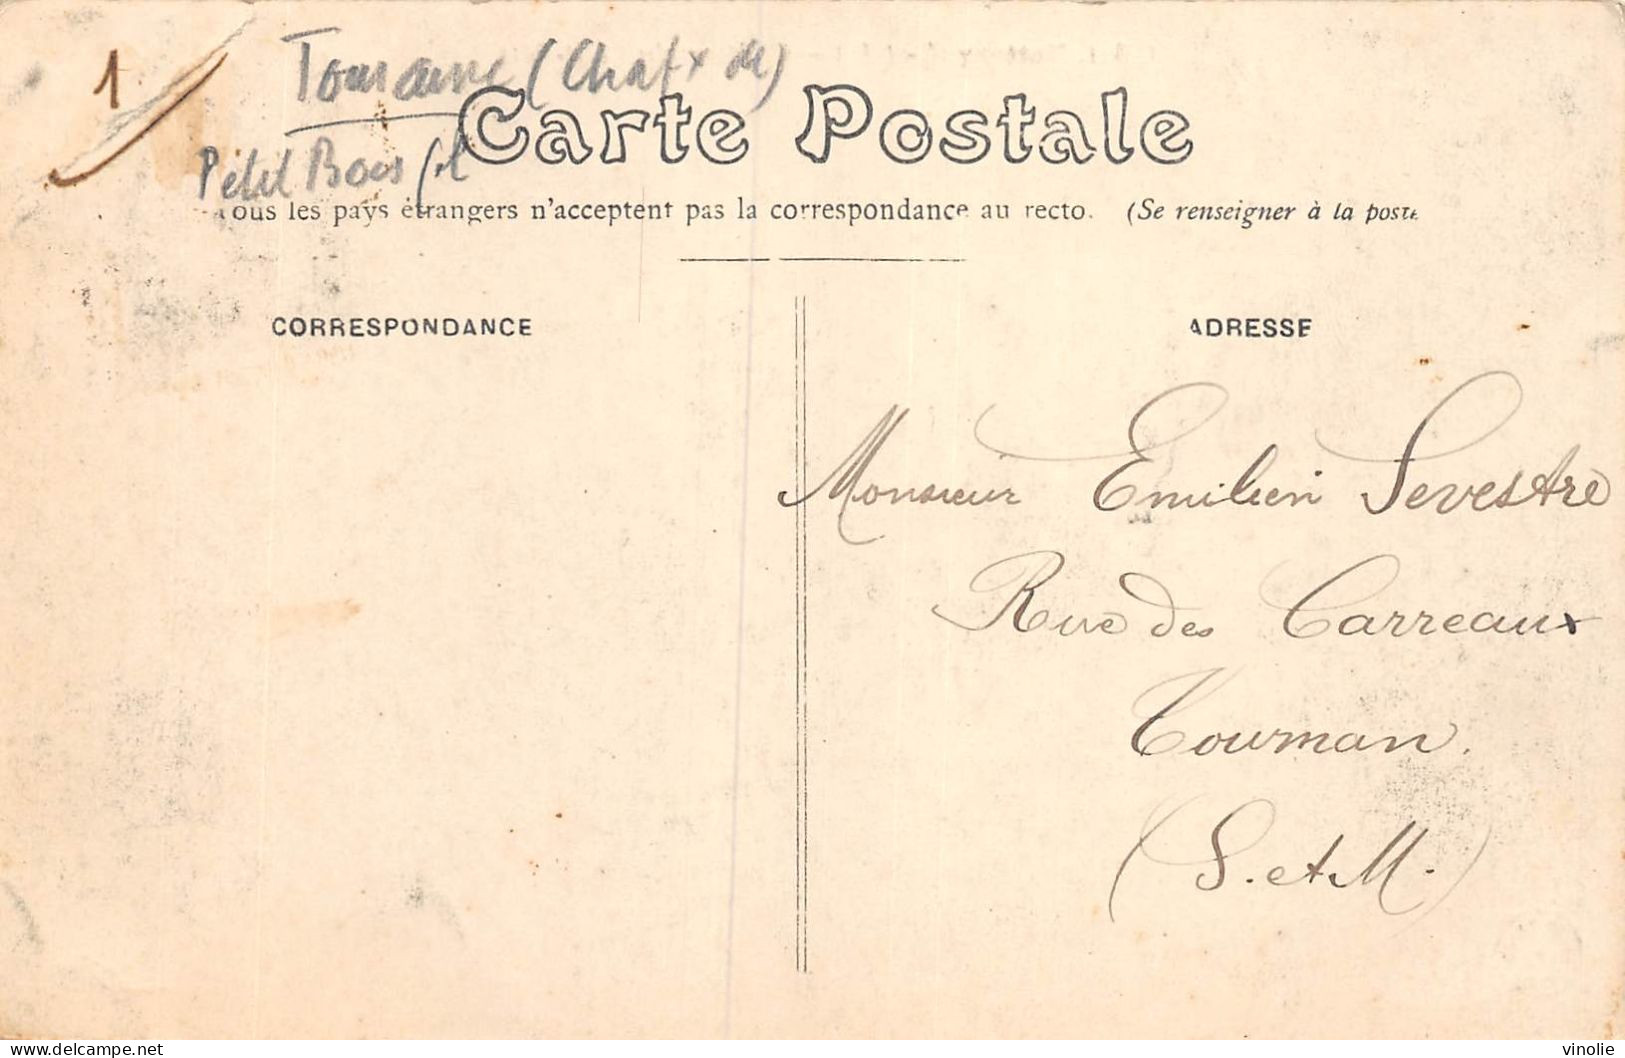 1
Touraine (Chatx de)
Petit Bois
Carte Postale
Tous les pays étrangers n'acceptent pas la correspondance au recto. (Se renseigner à la poste
CORRESPONDANCE
ADRESSE
Monsieur Emilien Sevestre
Rue des Carreaux
Tournan.
(S. et M.)
delcampe.net
vinolie